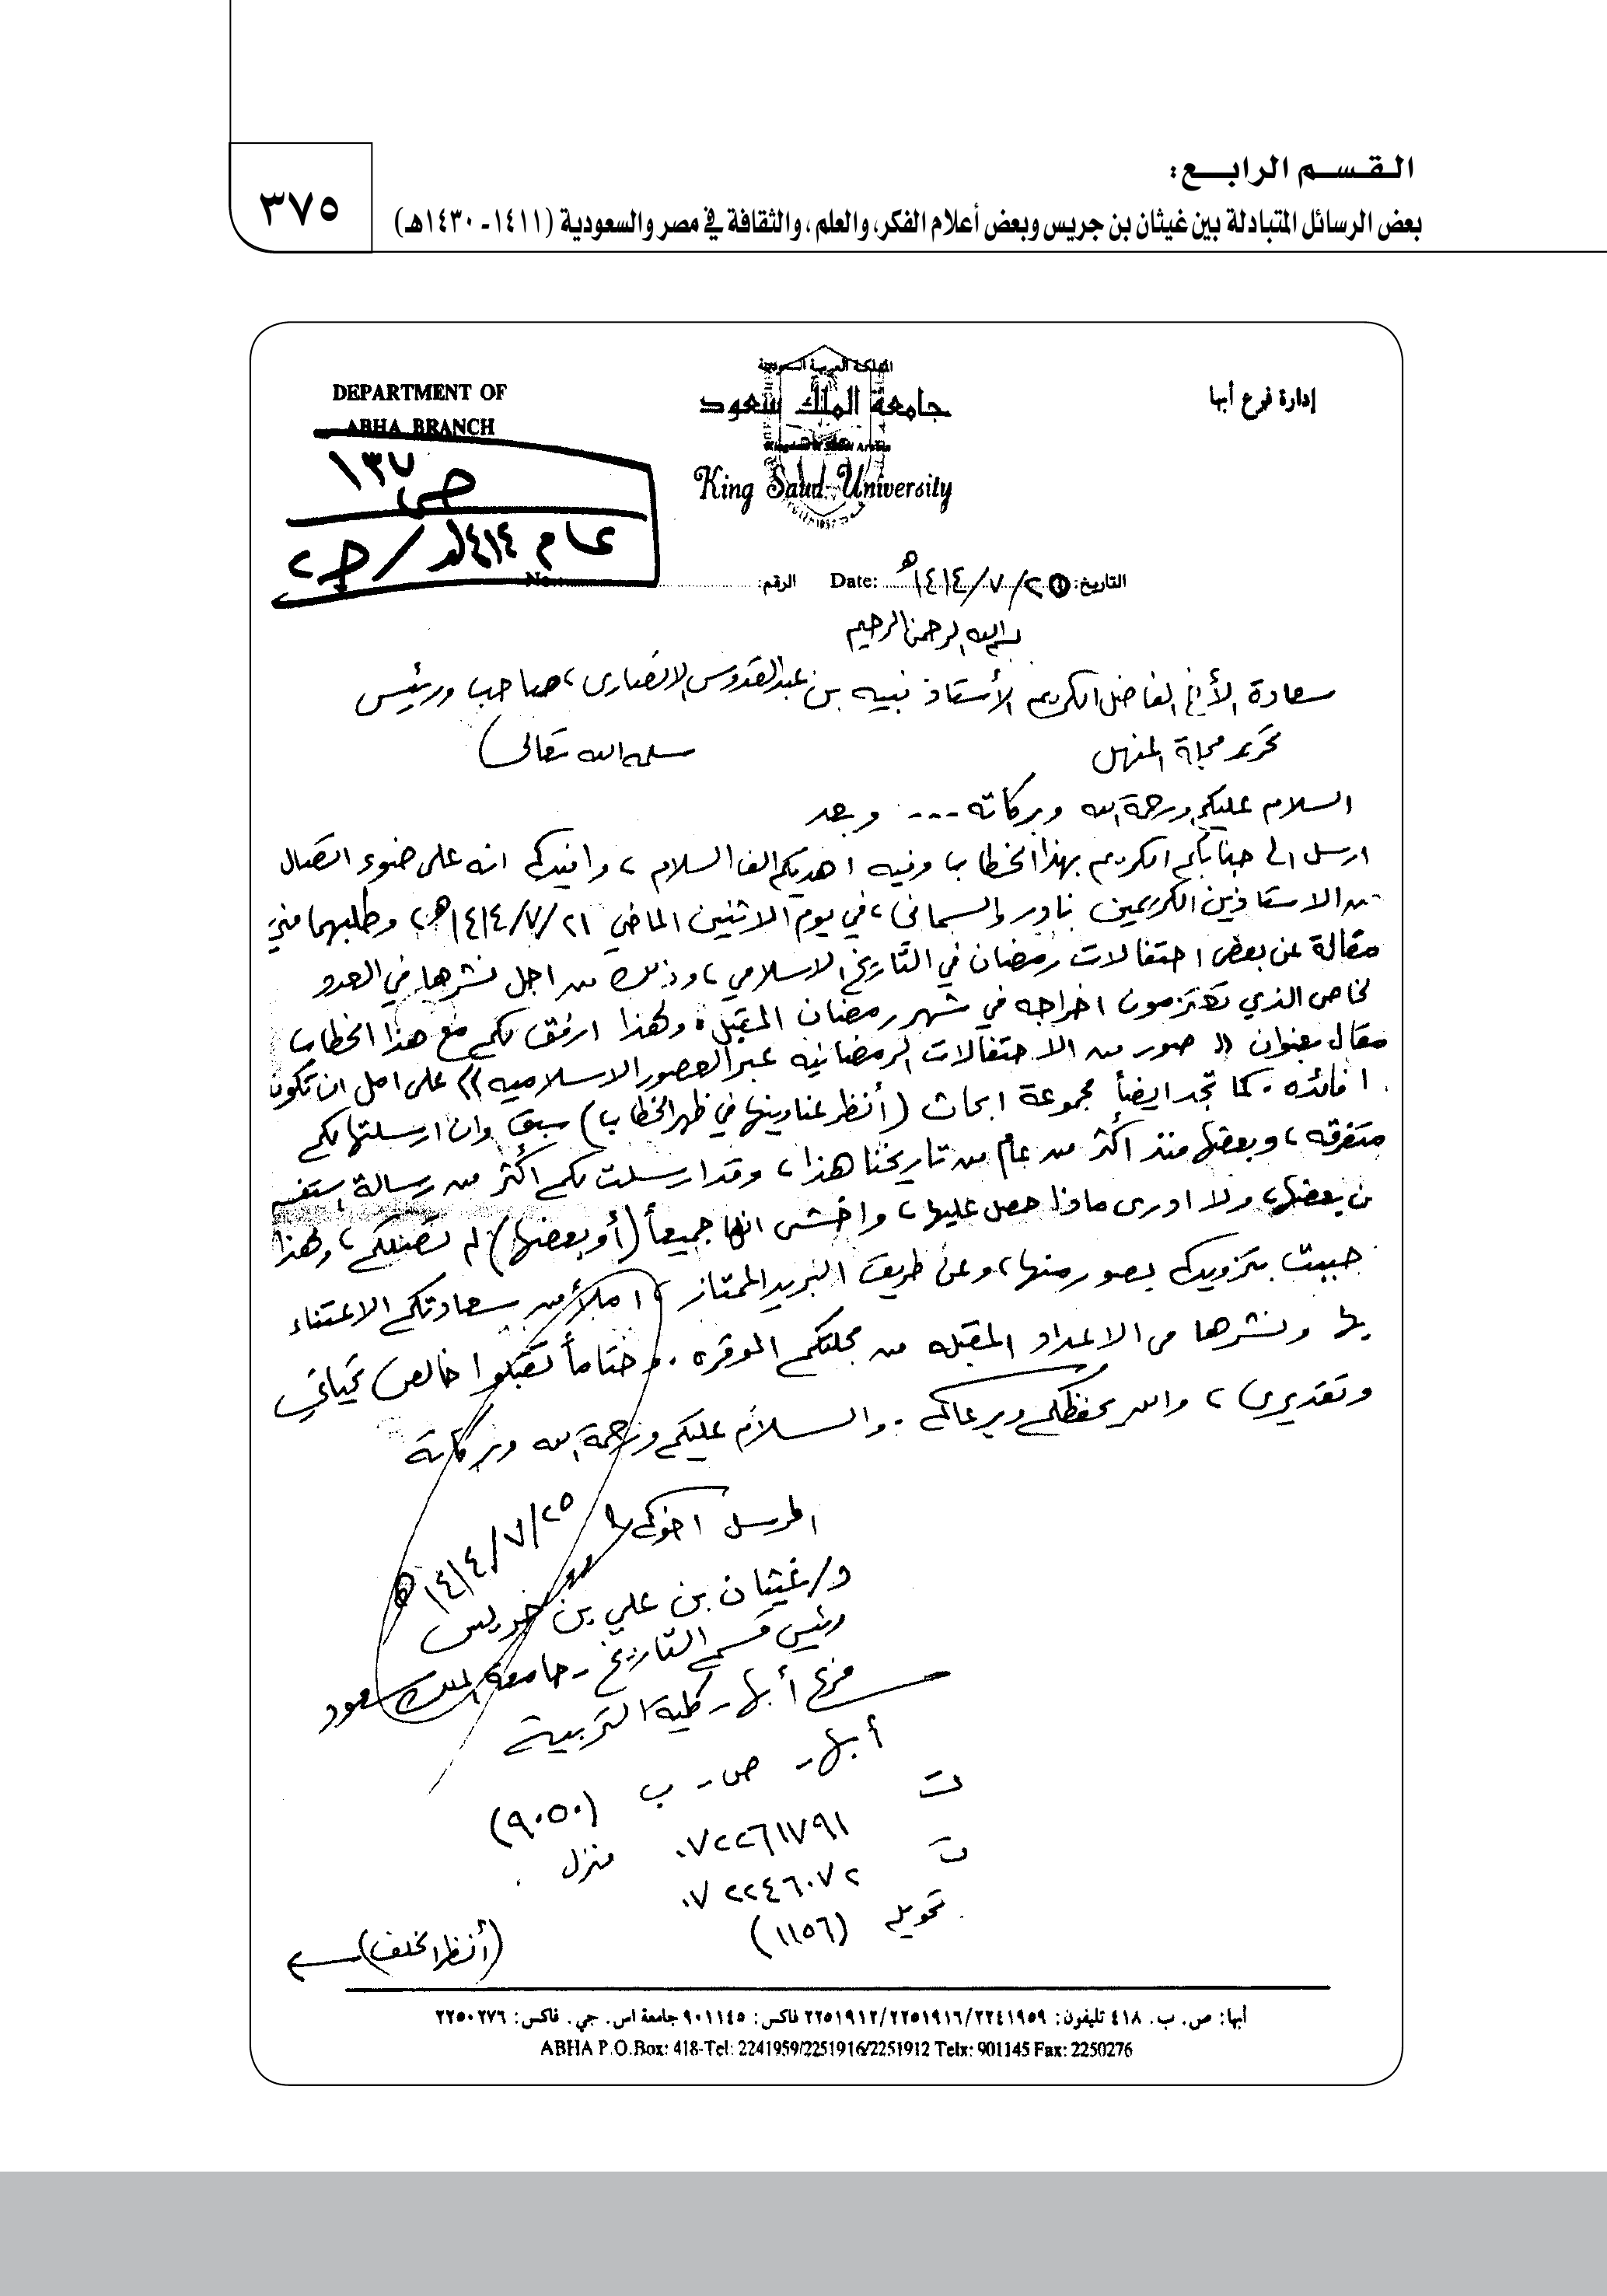 القسم الرابع:
بعض الرسائل المتبادلة بين غيثان بن جريس وبعض أعلام الفكر، والعلم، والثقافة في مصر والسعودية (١٤١١- ١٤٣٠هـ)
٣٧٥
إدارة فرع أبها
المملكة العربية السعودية
جامعة الملك سعود
King Saud University
DEPARTMENT OF
ABHA BRANCH
ص ١٣٧
عام ١٤١٤هـ / ج٢
التاريخ: ٢٥/٧/١٤١٤هـ Date: الرقم: No.:
بسم الله الرحمن الرحيم
سعادة الأخ الفاضل الكريم الأستاذ نبيه بن عبدالقدوس الانصارى، صاحب ورئيس
تحرير مجلة المنهل سلمه الله تعالى)
السلام عليكم ورحمة الله وبركاته --- وبعد
ارسل الى جنابكم الكريم بهذا الخطاب وفيه اهديكم الف السلام، وافيدكم انه على ضوء اتصال
من الاستاذين الكريمين نادر والسماني، في يوم الاثنين الماضي ٢١/٧/١٤١٤هـ، وطلبهما مني
مقالة عن بعض احتفالات رمضان في التاريخ الاسلامي، وذلك من اجل نشرها في العدد
لخاص الذي تعتزمون اخراجه في شهر رمضان المقبل. ولهذا ارفق لكم مع هذا الخطاب
مقال بعنوان (( صور من الاحتفالات الرمضانيه عبر العصور الاسلاميه )) على امل ان تكون
افائده. كما تجد ايضاً مجموعة ابحاث (أنظر عناوينها في ظهر الخطاب) سبق وان ارسلتها لكم
متفرقه، وبعضها منذ أكثر من عام من تاريخنا هذا، وقد ارسلت لكم أكثر من رسالة استفسر
ن بعضها، ولا ادرى ماذا حصل عليها، واخشى انها جميعاً (أو بعضها) لم تصلكم، ولهذا
حببت تزويدكم بصور منها، وعن طريق البريد الممتاز، املاً من سعادتكم الاعتناء
بها ونشرها في الاعداد المقبله من مجلتكم الموقره. وختاماً تقبلوا خالص تحياتي
وتقديرى، والله يحفظكم ويرعاكم. والسلام عليكم ورحمة الله وبركاته
المرسل اخوكم
٢٥/٧/١٤١٤هـ
د/غيثان بن علي بن جريس
رئيس قسم التاريخ - جامعة الملك سعود
فرع أبها - كلية التربية
أبها - ص - ب (٩٠٥٠)
ت ٠٧٢٢٦١٧٩١ منزل
ت ٠٧٢٢٤٦٠٧٢
تحويله (١١٥٦)
(أنظر الخلف)
أبها: ص. ب. ٤١٨ تليفون: ٢٢٤١٩٥٩/٢٢٥١٩١٦/٢٢٥١٩١٢ فاكس: ٩٠١١٤٥ جامعة اس. جي. فاكس: ٢٢٥٠٢٧٦
ABHA P.O.Box: 418-Tel: 2241959/2251916/2251912 Telx: 901145 Fax: 2250276